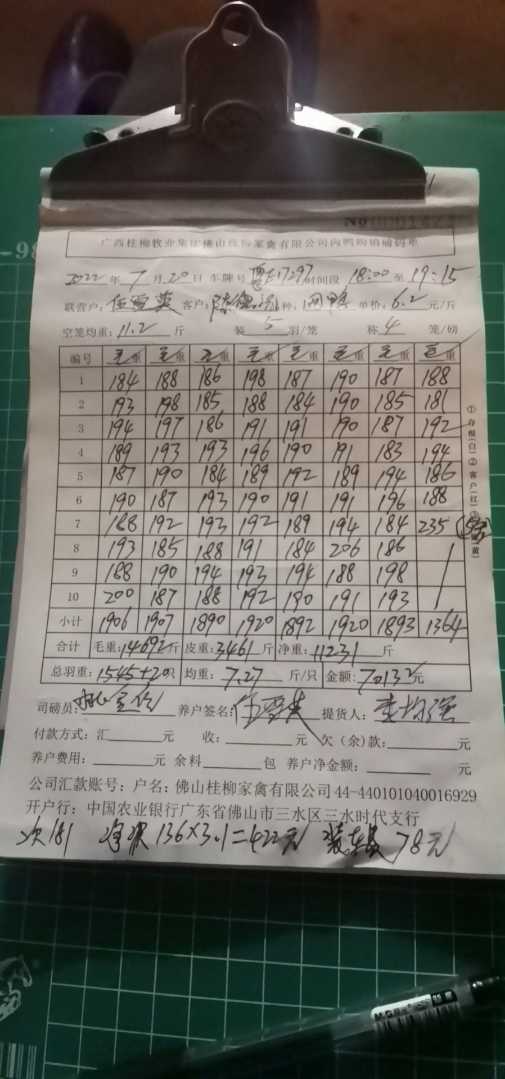 No
广西桂柳牧业集团佛山桂柳家禽有限公司肉鸭购销磅码单
2022年7月20日 车牌号 17297 时间段 18:00至19:15
联营户: 客户: 种: 单价: 6.2元/斤
空笼均重: 11.2斤 装5羽/笼 称4笼/磅
编号 毛重 毛重 毛重 毛重 毛重 毛重 毛重 毛重
1 184 188 186 198 187 190 187 188
2 193 198 185 188 184 190 185 181
3 194 197 186 191 191 190 187 192
4 189 193 193 196 190 191 183 194
5 187 190 184 189 192 189 194 186
6 190 187 193 190 191 191 196 188
7 188 192 193 192 189 194 184 235
8 193 185 188 191 184 206 186
9 188 190 194 193 194 188 198
10 200 187 188 192 190 191 193
小计 1906 1907 1890 1920 1892 1920 1893 1364
合计 毛重: 14692斤 皮重: 3461斤 净重: 11231斤
总羽重: 1545+20只 均重: 7.27斤/只 金额: 70132元
司磅员: 养户签名: 提货人:
付款方式: 汇 元 收: 元 欠(余)款: 元
养户费用: 元 余料 包 养户净金额: 元
公司汇款账号: 户名: 佛山桂柳家禽有限公司44-440101040016929
开户行: 中国农业银行广东省佛山市三水区三水时代支行
次181 136×3.1=422元 装车 78元
①存根(白)②客户(红)③ 黄)
M&G